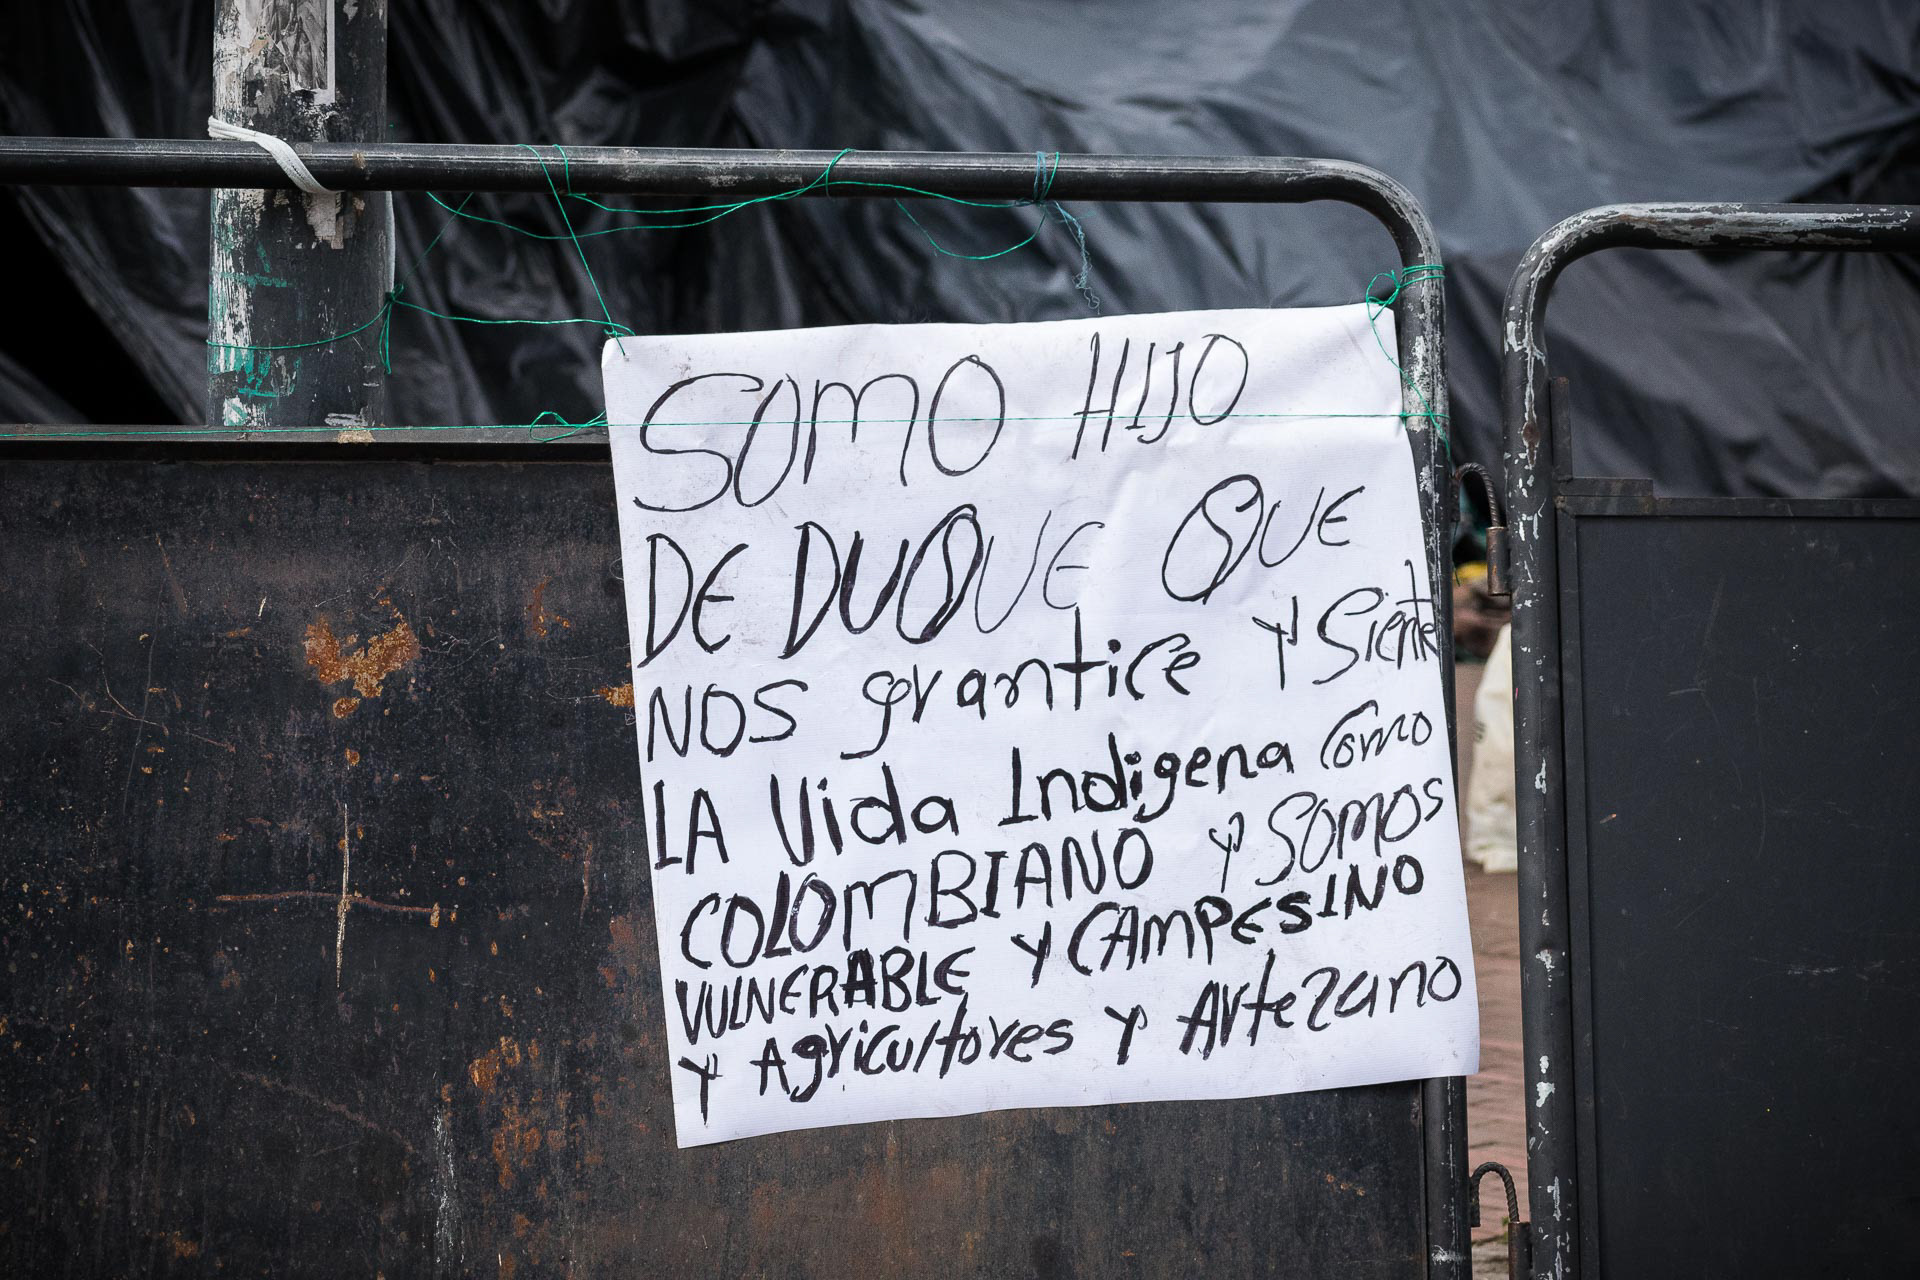 SOMO HIJO
DE DUQUE QUE
NOS grantice Y Siente
LA Vida Indigena Como
COLOMBIANO Y SOMOS
VULNERABLE Y CAMPESINO
Y Agricultores Y Artezano